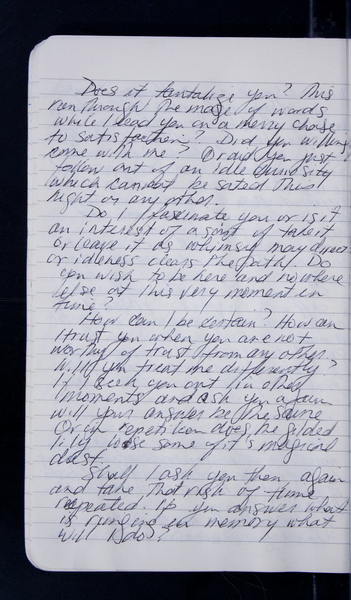 Does it tantalize you? This
run through the maze of words
while I lead you on a merry chase
to satisfaction? Did you willing
come with me? Or did you just
follow out of an idle curiosity
which cannot be sated this
night or any other.
Do I fascinate you or is it
an interest of a sort of take it
or leave it as whimsy may direct
or idleness clears the path? Do
you wish to be here and no where
else at this very moment in
time?
How can I be certain? How can
I trust you when you are not
worthy of trust from any other.
Will you treat me differently?
If I seek you out in other
moments and ask you again
will your answer be the same
Or in repetition does the gilded
lily lose some of it's magical
dust.
Shall I ask you then again
and take that risk of time
repeated. If you answer what
is ringing in memory what
will I do?